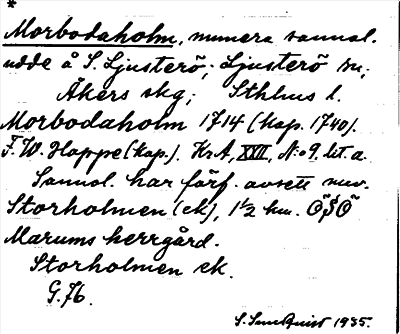 *
Morbodaholm, numera sannol.
udde å S. Ljusterö; Ljusterö sn;
Åkers skg; Sthlms l.
Morbodaholm 1714 (kop. 1740).
F. W. Hoppe (kop.), Kr.A, XVII, N:o 9. lit. a.
Sannol. har förf. avsett nuv.
Storholmen (ek), 1 1/2 km. ÖSÖ
Marums herrgård.
Storholmen ek.
G. 76.
1935.